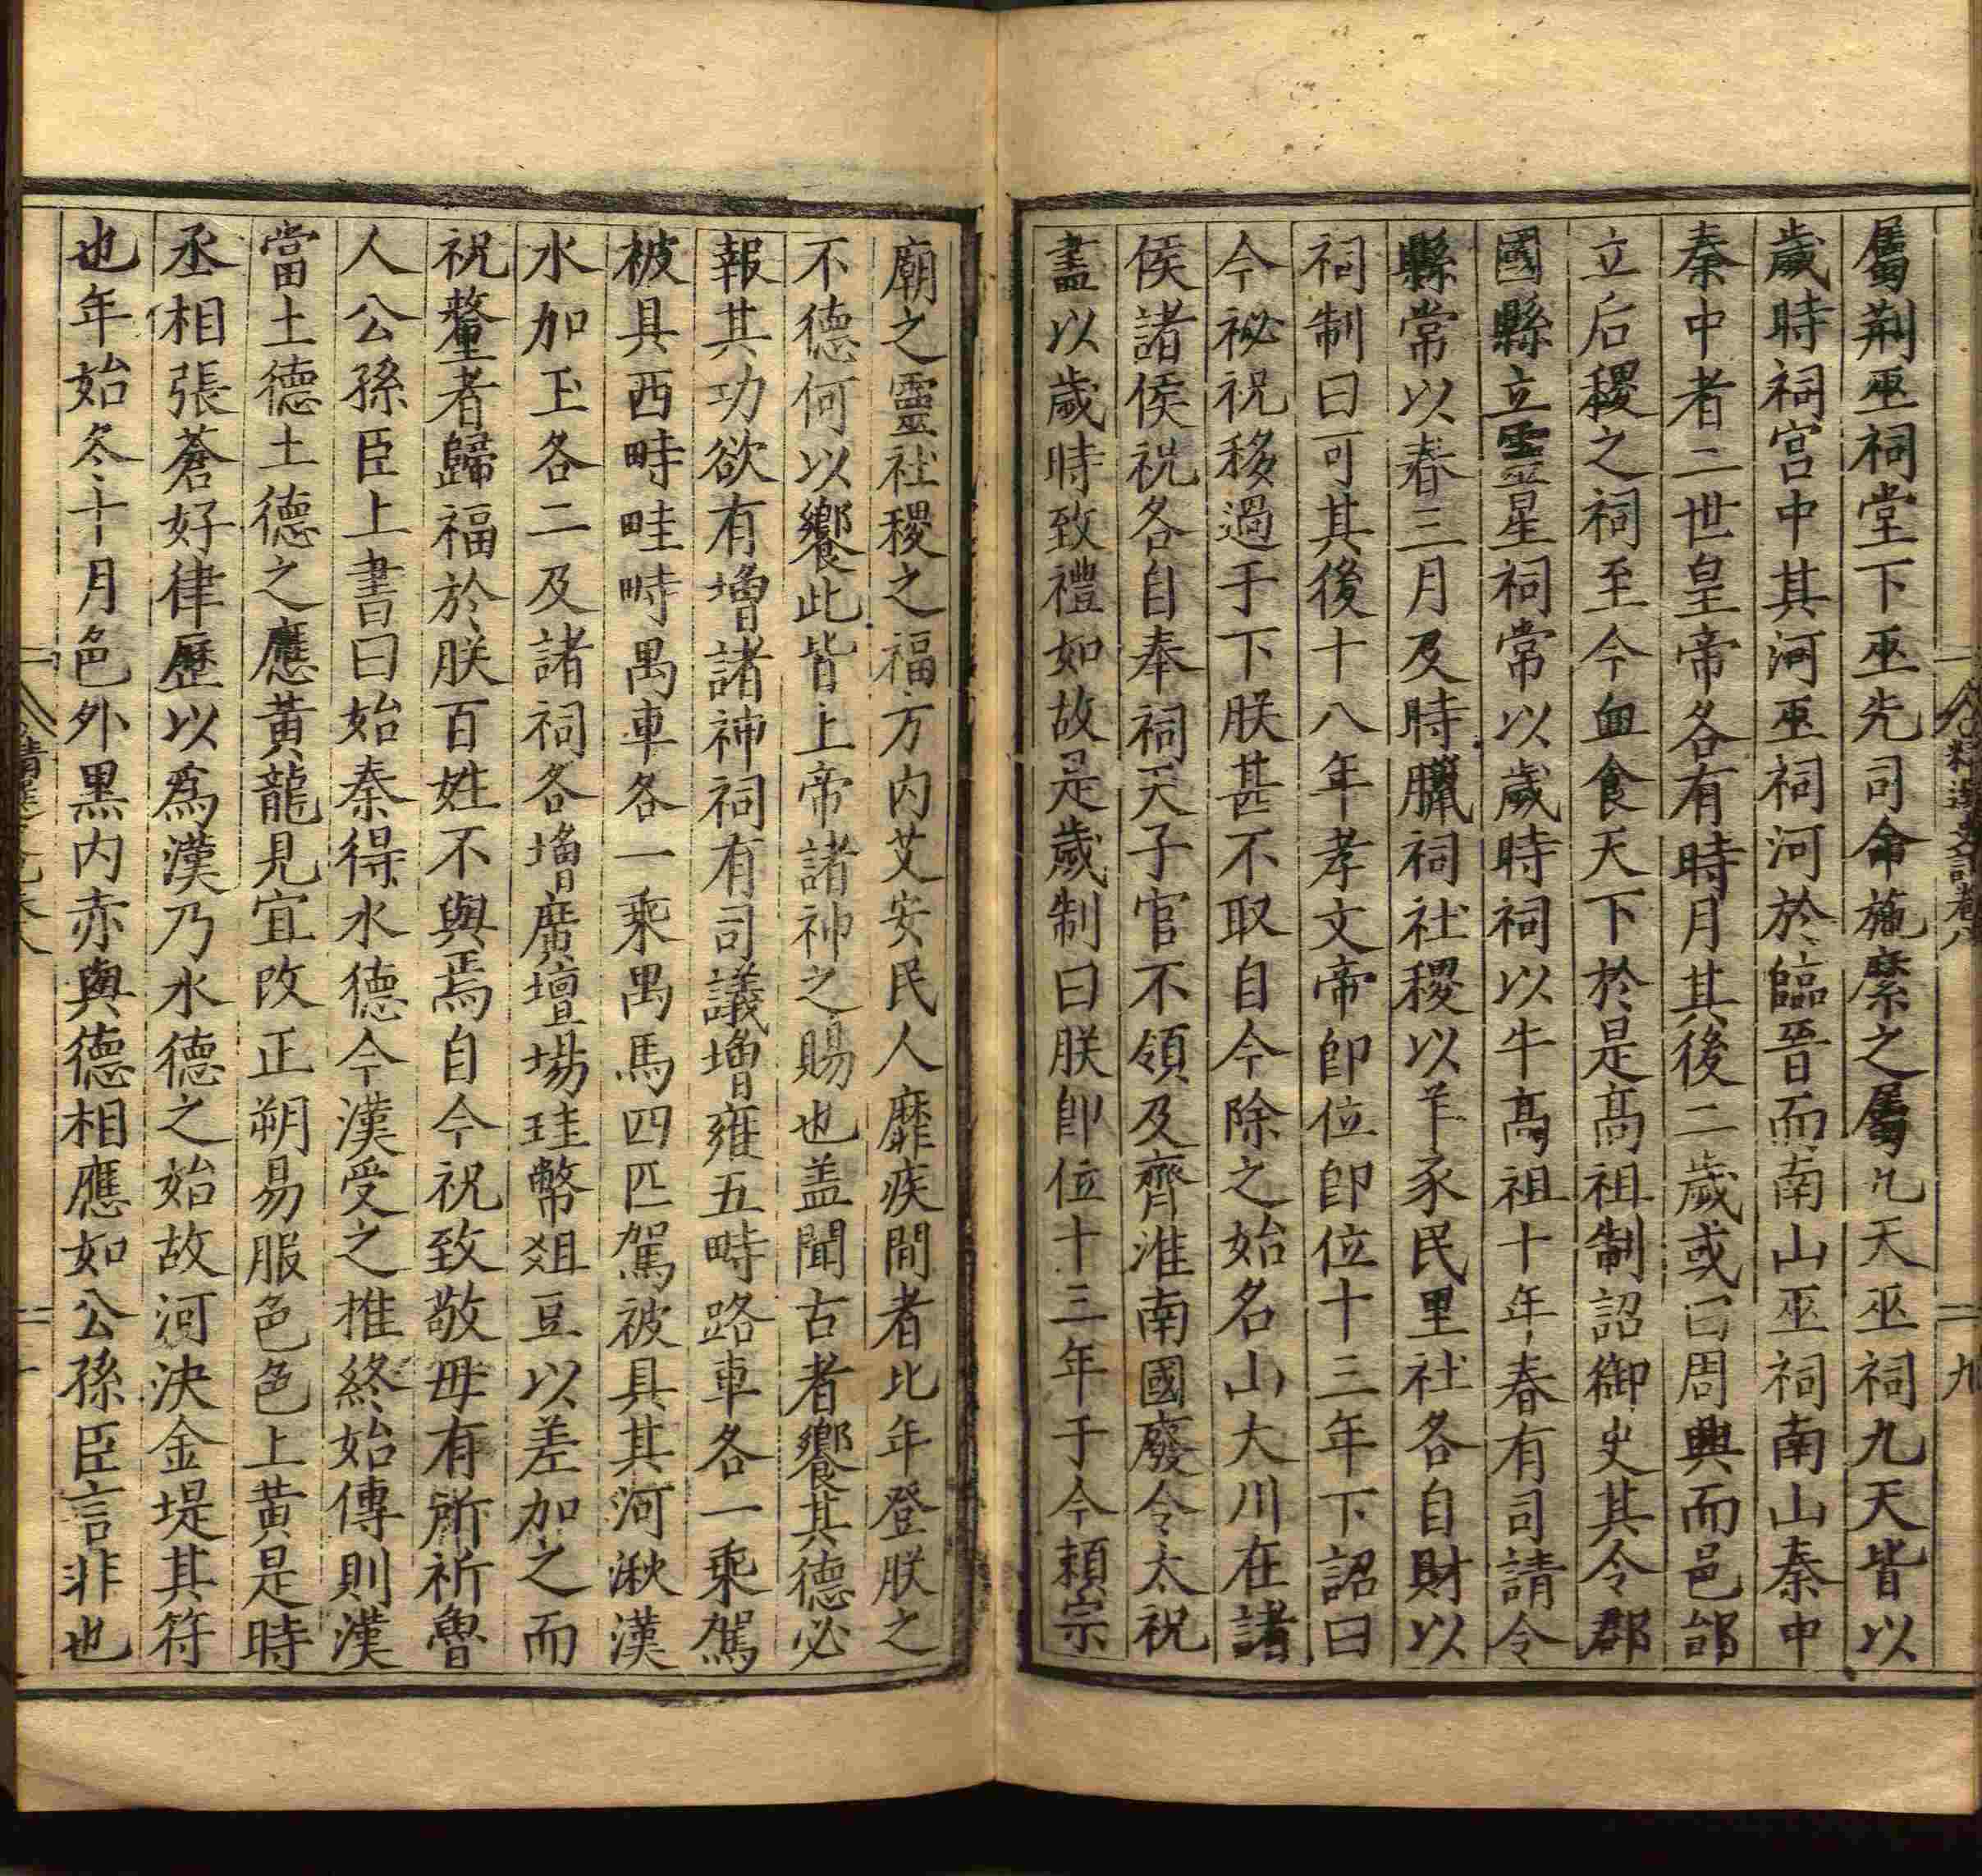 屬荆巫祠堂下巫先司命施縻之屬九天巫祠九天皆以
歲時祠宫中其河巫祠河於臨晉而南山巫祠南山秦中
秦中者二世皇帝各有時月其後二歲或曰周興而邑邰
立后稷之祠至今血食天下於是髙祖制詔御史其令郡
國縣立靈星祠常以歲時祠以牛髙祖十年春有司請令
縣常以春三月及時臘祠社稷以羊豕民里社各自財以
祠制曰可其後十八年孝文帝卽位卽位十三年下詔曰
今祕祝移過于下朕甚不取自今除之始名山大川在諸
侯諸侯祝各自奉祠天子官不領及齊淮南國廢令太祝
盡以歲時致禮如故是歲制曰朕卽位十三年于今賴宗
廟之靈社稷之福方内艾安民人靡疾間者比年登朕之
不德何以饗此皆上帝諸神之賜也盖聞古者饗其德必
報其功欲有增諸神祠有司議增雍五畤路車各一乘駕
被具西畤畦畤禺車各一乘禺馬四匹駕被具其河湫漢
水加玉各二及諸祠各增廣壇場珪幣爼豆以差加之而
祝釐者歸福於朕百姓不與焉自今祝致敬毋有所祈魯
人公孫臣上書曰始秦得水德今漢受之推終始傳則漢
當土德土德之應黃龍見宜改正朔易服色色上黃是時
丞相張蒼好律歷以爲漢乃水德之始故河決金堤其符
也年始冬十月色外黒内赤與德相應如公孫臣言非也
九